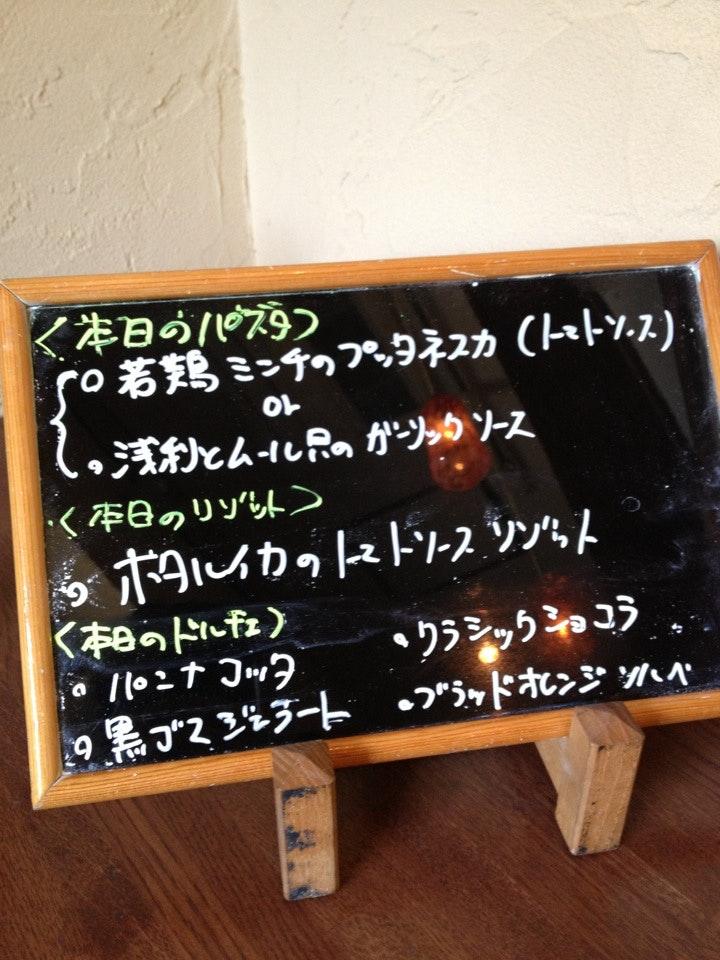 〈本日のパスタ〉
○若鶏ミンチのプッタネスカ(トマトソース)
or
。浅利とムール貝のガーリックソース
〈本日のリゾット〉
。ホタルイカのトマトソースリゾット
〈本日のドルチェ〉
。パンナコッタ
。黒ゴマジェラート
。クラシックショコラ
。ブラッドオレンジソルベ